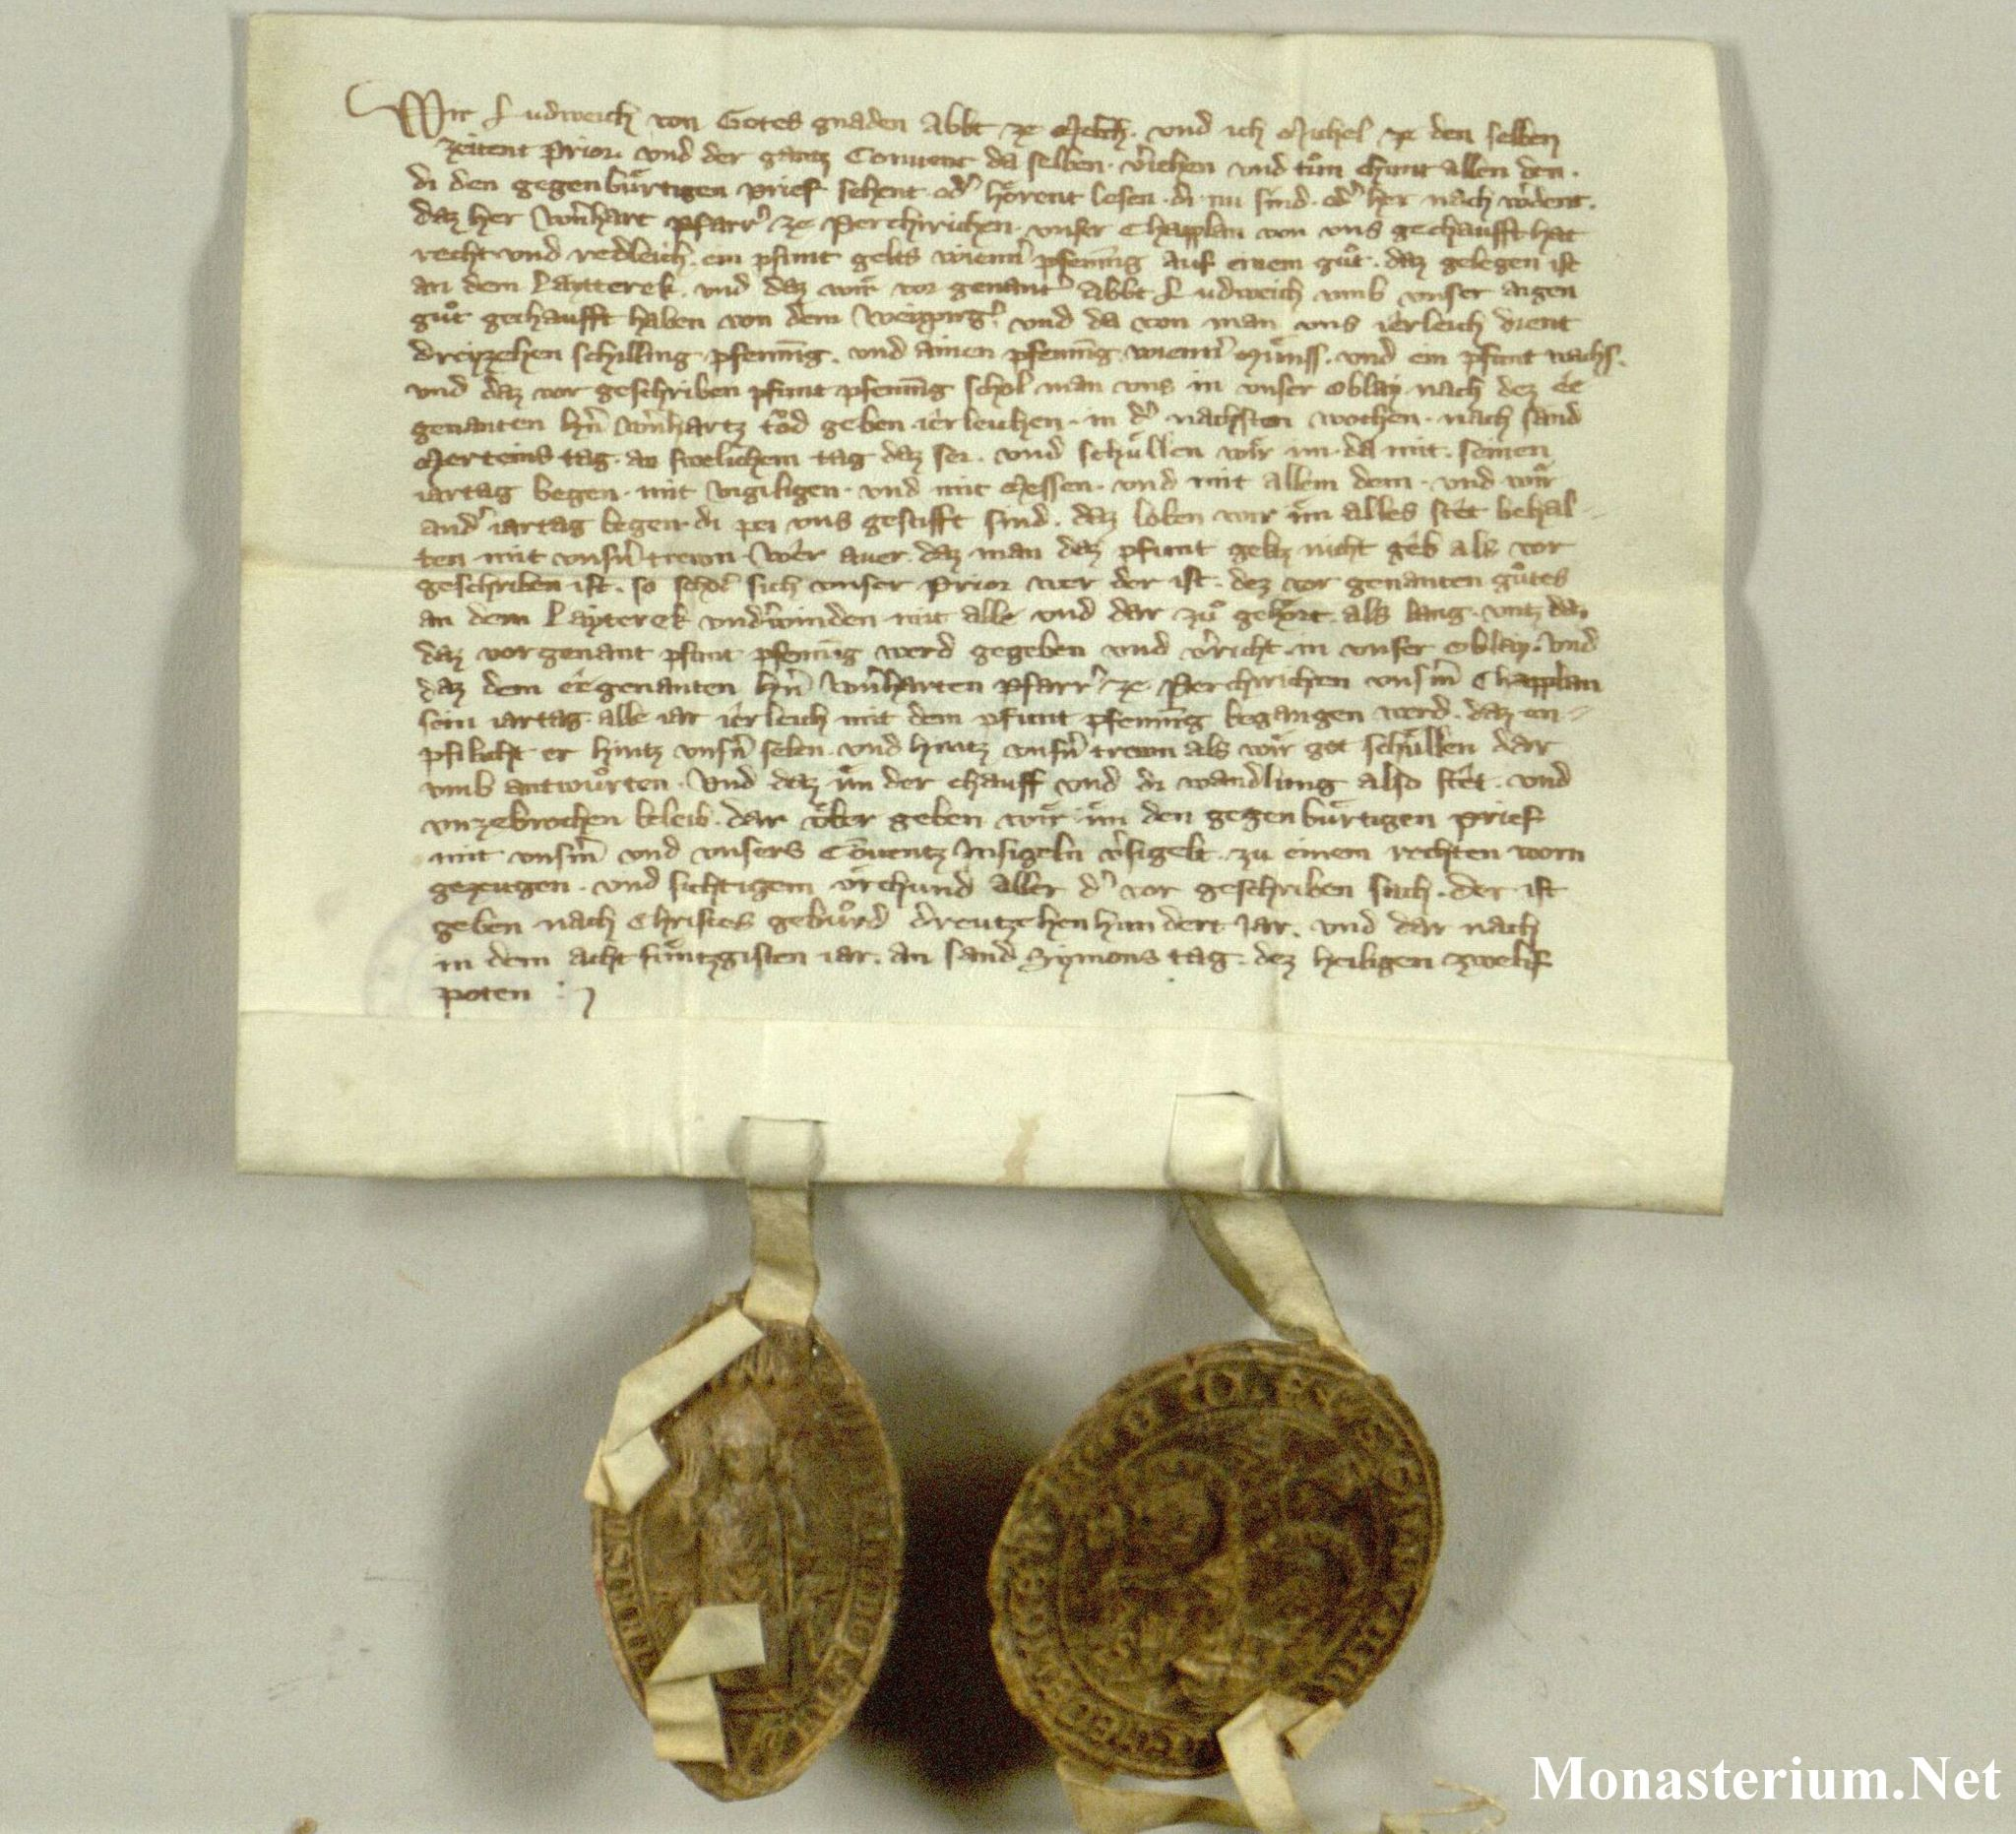 Wir Ludweich von Gotes gnaden Abbt ze Melch. vnd ich Michel ze den selben
zeitent Prior. vnd der gantz Conuent da selben. v̾iehen vnd tůn chunt allen den.
di den gegenbůrtigen prief sehent. od̾ hoͤrent lesen. di nu sind. od̾ her nach w̾dent.
daz her Wer̄hart pfarr̾ ze Perchirichen. vnser Chapplan von vns gechaufft hat
recht vnd redleich. ein pfunt gelts wienn̾ pfenni̅g auf einem gůt. daz gelegen ist
an dem Laytterek. vnd daz wir vor genant̾ Abbt Ludweich vmb vnser aigen
gůt gechaufft haben von dem vnd da von man vns ierleich dient
dreyzehen schilling pfenni̅g. vnd ainen pfenni̅g wienn̾ Můnss. vnd ein pfunt wachs.
vnd daz vor geschriben pfunt pfenni̅g schol man vns in vnser oblay nach dez ee
genanten h̾n Wer̄hartz tǒd geben ierleichen. in d̾ nachsten wochen. nach sand
Merteins tag. an swelichem tag daz sei. vnd schůllen wir im da mit. seinen
iartag begen. mit vigiligen. vnd mit Messen. vnd mit allem dem. vnd wir
and̾ iartag begen di pei vns gestifft sind. daz loben wir im alles stet behal-
ten mit vnsn̾ trewn. Wer auer daz man daz pfunt geltz nicht geb als vor
geschriben ist. so schol sich vnser Prior wer der ist. dez vor genanten gůtes
an dem Layterek vnd̾winden mit alle vnd dar zů gehort. als lang. vntz daz
daz vorgenant pfunt pfenni̅g werd gegeben vnd v̾richt in vnser oblay. Vnd
daz dem eegenanten h̾n Wer̄harten Pfarr̾ ze Perchirichen vnsm̾ Chapplan
sein iartag alle iar ierleich mit dem pfunt pfenni̅g begangen werd. daz en-
pfilicht er hintz vnsn̾ selen vnd hintz vnsn̾ trewn als wir got schůllen dar
vmb antwůrten. Vnd daz im der chauff vnd di wandlung also stet. vnd
vnzebrochen beleib. dar vͤber geben wir im den gegenbůrtigen prief
mit vnsm̾ vnd vnsers Co̅uentz Insigeln v̾sigelt. zu einem rechten worn
gezeugen. vnd sichtigem vrchund aller d̾ vor geschriben sach. der ist
geben nach Christes gebůrd dreutzehenhundert Jar. vnd dar nach
in dem acht fuͤntzgisten iar. an sand Symons tag. dez heiligen zwelif
poten
Monasterium.Net